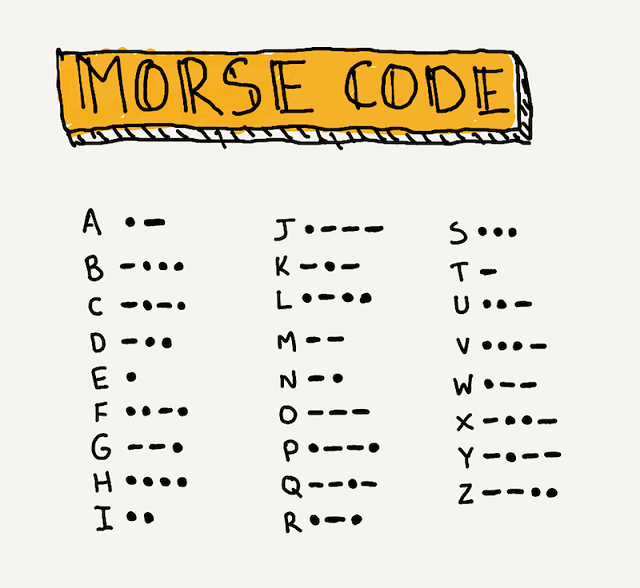 MORSE CODE
A •–
B –•••
C –•–•
D –••
E •
F ••–•
G ––•
H ••••
I ••
J •–––
K –•–
L •–••
M ––
N –•
O –––
P •––•
Q ––•–
R •–•
S •••
T –
U ••–
V •••–
W •––
X –••–
Y –•––
Z ––••